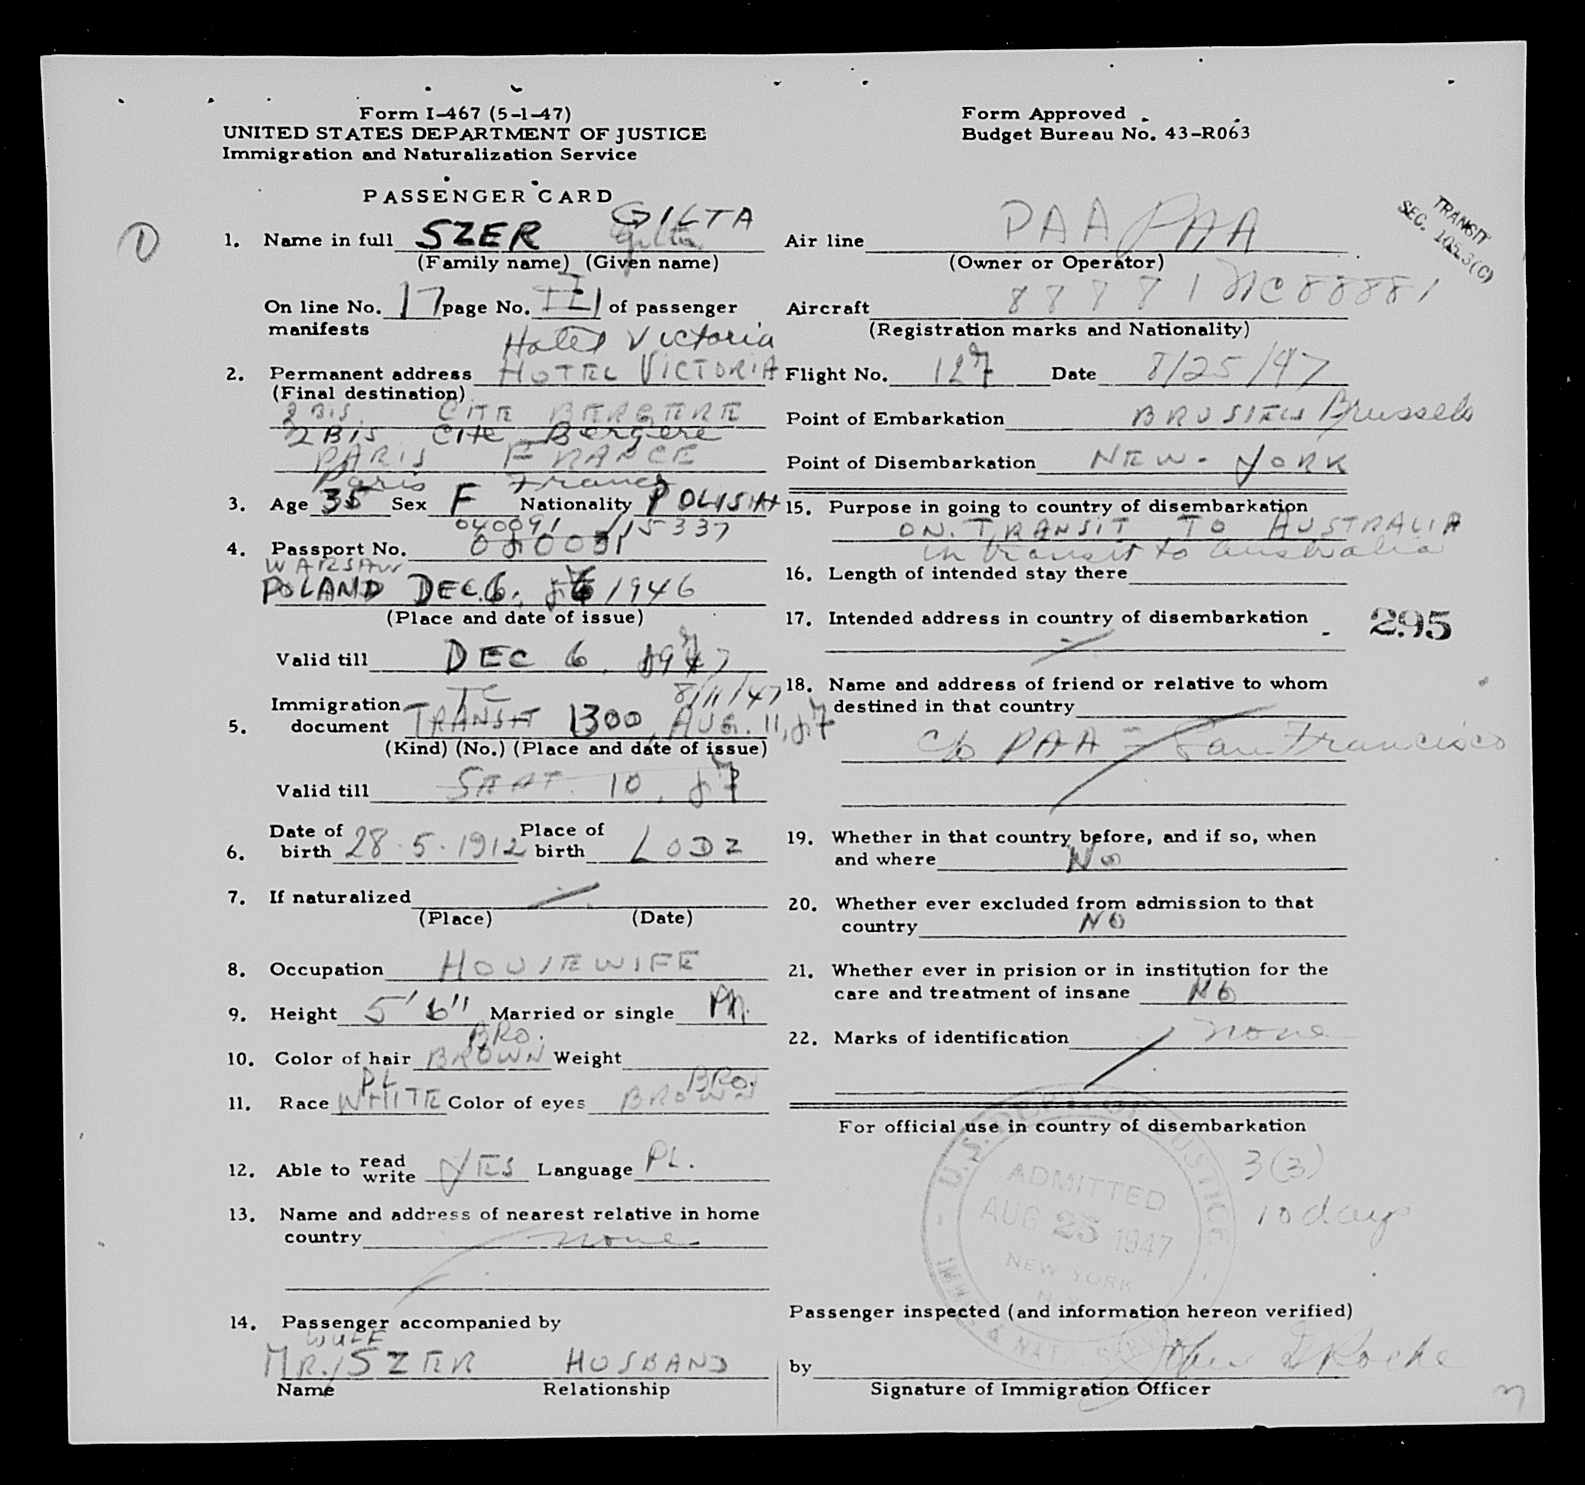 Form I-467 (5-1-47)
UNITED STATES DEPARTMENT OF JUSTICE
Immigration and Naturalization Service
Form Approved .
Budget Bureau No. 43-R063
PASSENGER CARD
TRANSIT
SEC. 105.3(C)
1. Name in full SZER GILTA Gilta
(Family name) (Given name)
On line No. 17 page No. of passenger
manifests
Hotel Victoria
2. Permanent address HOTEL VICTORIA
(Final destination)
2 BIS. CITE BERGERE
2 Bis Cite Bergere
PARIS FRANCE
Paris France
3. Age 35 Sex F Nationality POLISH
040091 /15337
4. Passport No.
WARSAW
POLAND DEC. 6. 1946
(Place and date of issue)
Valid till DEC 6, 1947
TC 8/11/47
Immigration
5. document TRANSIT 1300, AUG. 11, 47
(Kind) (No.) (Place and date of issue)
Valid till SEPT. 10, 47
Date of Place of
6. birth 28.5.1912 birth LODZ
7. If naturalized
(Place) (Date)
8. Occupation HOUSEWIFE
9. Height 5'6" Married or single M.
BRO.
10. Color of hair BROWN Weight
PL BRO.
11. Race WHITE Color of eyes BROWN
12. Able to read write YES Language PL.
13. Name and address of nearest relative in home
country none
14. Passenger accompanied by
WULF
MR. SZER HUSBAND
Name Relationship
Air line PAA PAA
(Owner or Operator)
Aircraft NC 88881
(Registration marks and Nationality)
Flight No. 127 Date 8/25/47
Point of Embarkation Brussels
Point of Disembarkation NEW-YORK
15. Purpose in going to country of disembarkation
ON. TRANSIT TO AUSTRALIA
in transit to australia
16. Length of intended stay there
17. Intended address in country of disembarkation
295
18. Name and address of friend or relative to whom
destined in that country
c/o PAA - San Francisco
19. Whether in that country before, and if so, when
and where No
20. Whether ever excluded from admission to that
country NO
21. Whether ever in prision or in institution for the
care and treatment of insane NO
22. Marks of identification none
For official use in country of disembarkation
U.S. DEPT. OF JUSTICE
ADMITTED
AUG 25 1947
NEW YORK
N.Y.
IMMIG & NAT.
3(3)
10 days
Passenger inspected (and information hereon verified)
by John
Signature of Immigration Officer